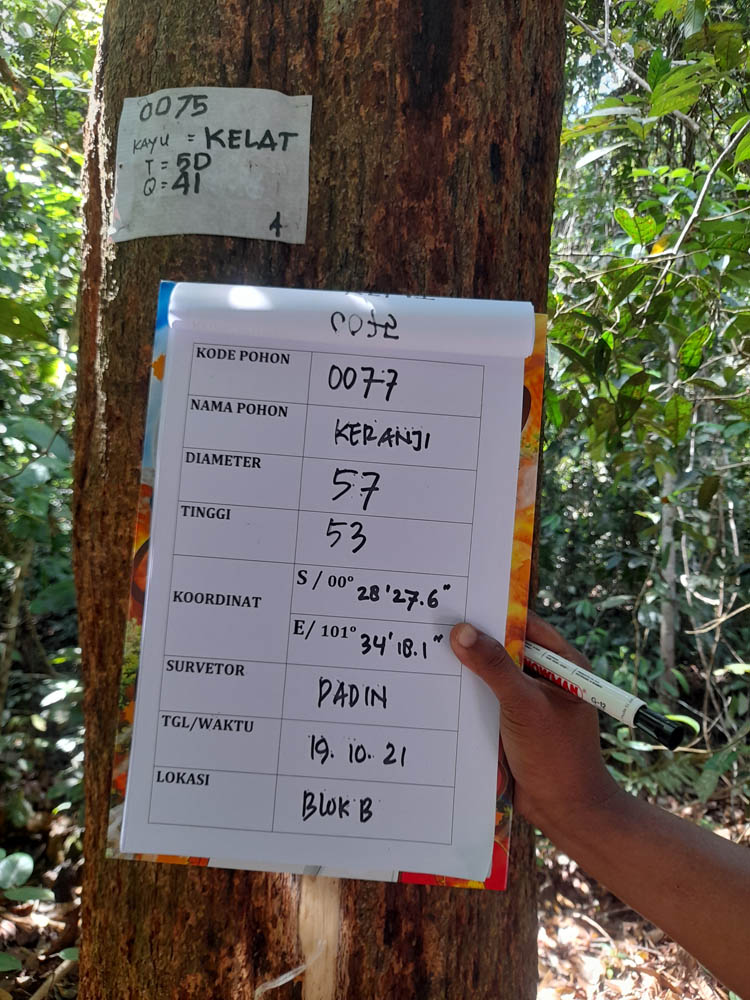 0075
KAYU = KELAT
T = 50
Q = 41
A
KODE POHON 0077
NAMA POHON KERANJI
DIAMETER 57
TINGGI 53
KOORDINAT S / 00° 28'27.6"
E/ 101° 34'18.1"
SURVETOR DADIN
TGL/WAKTU 19. 10. 21
LOKASI BLOK B
SNOWMAN
G-12